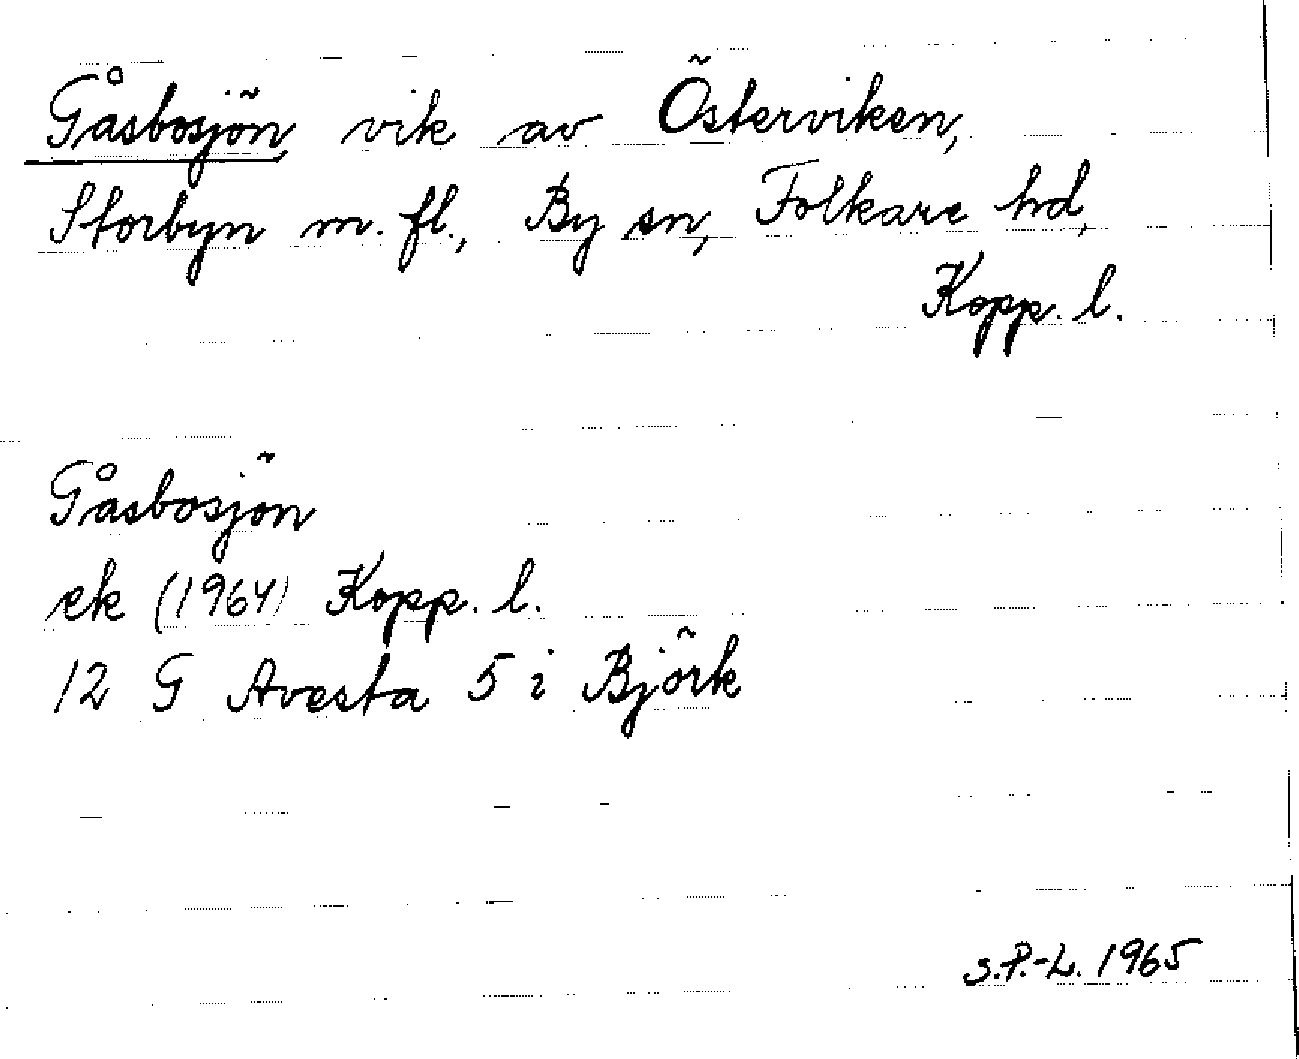 Gåsbosjön, vik av Österviken,
Storbyn m. fl., By sn, Folkare hd,
Kopp. l.
Gåsbosjön
ek (1964) Kopp. l.
12 G Avesta 5 i Björk
S.P.-L. 1965